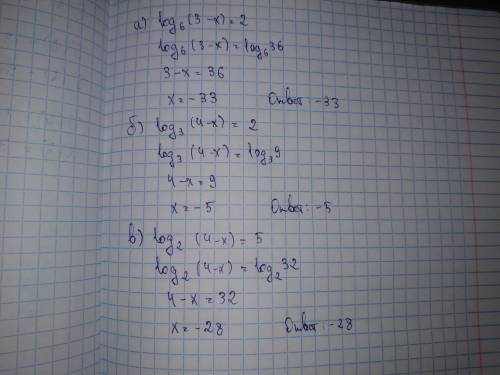 а) log₆(3-x)=2
log₆(3-x)=log₆36
3-x=36
x=-33 Ответ: -33
б) log₃(4-x)=2
log₃(4-x)=log₃9
4-x=9
x=-5 Ответ: -5
в) log₂(4-x)=5
log₂(4-x)=log₂32
4-x=32
x=-28 Ответ: -28